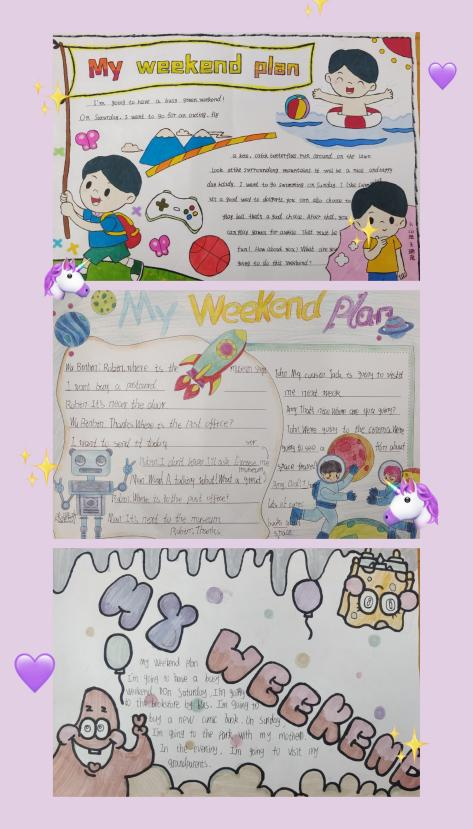 My weekend plan
I'm going to have a busy green weekend!
On Saturday, I want to go for an outing, fly
a kite, catch butterflies, run around on the lawn
Look at the surrounding mountains. It will be a nice and happy
day. I want to go swimming on Sunday. I like
It's a good way to you can also choose to
play ball. that's a good choice. After that, you
can play games for a while. That must be
fun! How about you? What are you
going to do this weekend?
My Weekend Plan
Mr Benton: Robin, where is the museum shop
I want buy a postcard.
Robin: It's near the door
Mr Benton: Thanks. Where is the post office?
I want to send it today.
Robin: I don't know. I'll ask
museum,
Wow! A talking robot! What a great
Robin: Where is the post office?
Man: It's next to the museum
Robin: Thanks
John: My cousin Jack is going to visit
me next week
Amy: That's nice. Where are you going?
John: We're going to the cinema. We're
going to see a film about
space travel
Amy: Cool! I
space
My WEEKEND
My Weekend Plan
I'm going to have a busy
weekend! On Saturday, I'm going
to the bookstore by bus. I'm going to
buy a new comic book. On Sunday
I'm going to the park with my mother.
In the evening, I'm going to visit my
grandparents.